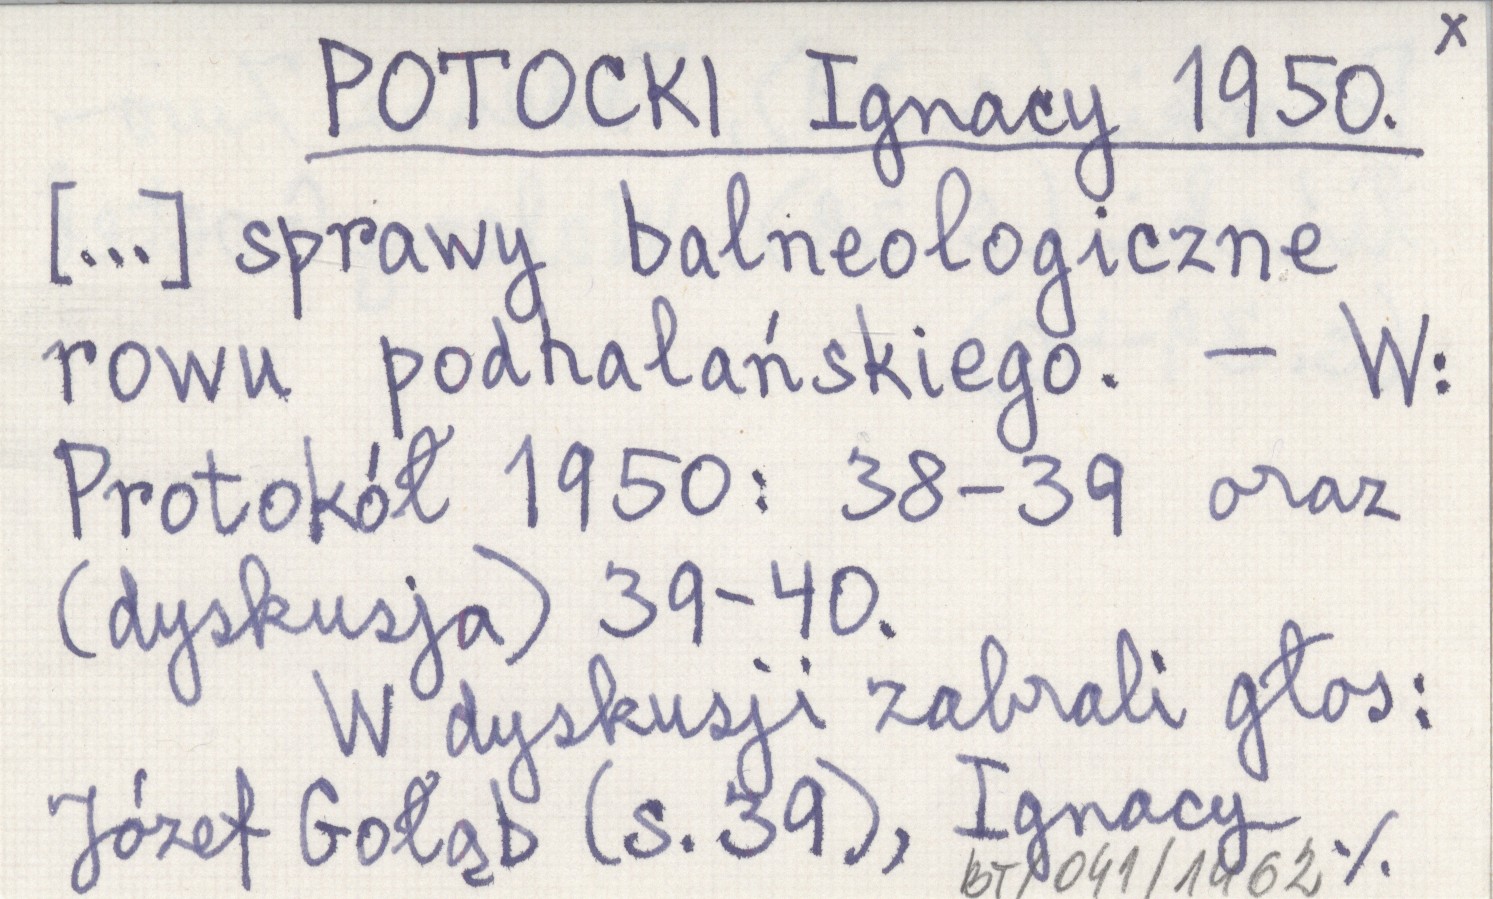 x
POTOCKI Ignacy 1950.
[...] sprawy balneologiczne
rowu podhalańskiego. — W:
Protokół 1950: 38-39 oraz
(dyskusja) 39-40.
W dyskusji zabrali głos:
Józef Gołąb (s. 39), Ignacy ./.
BT/041/1462